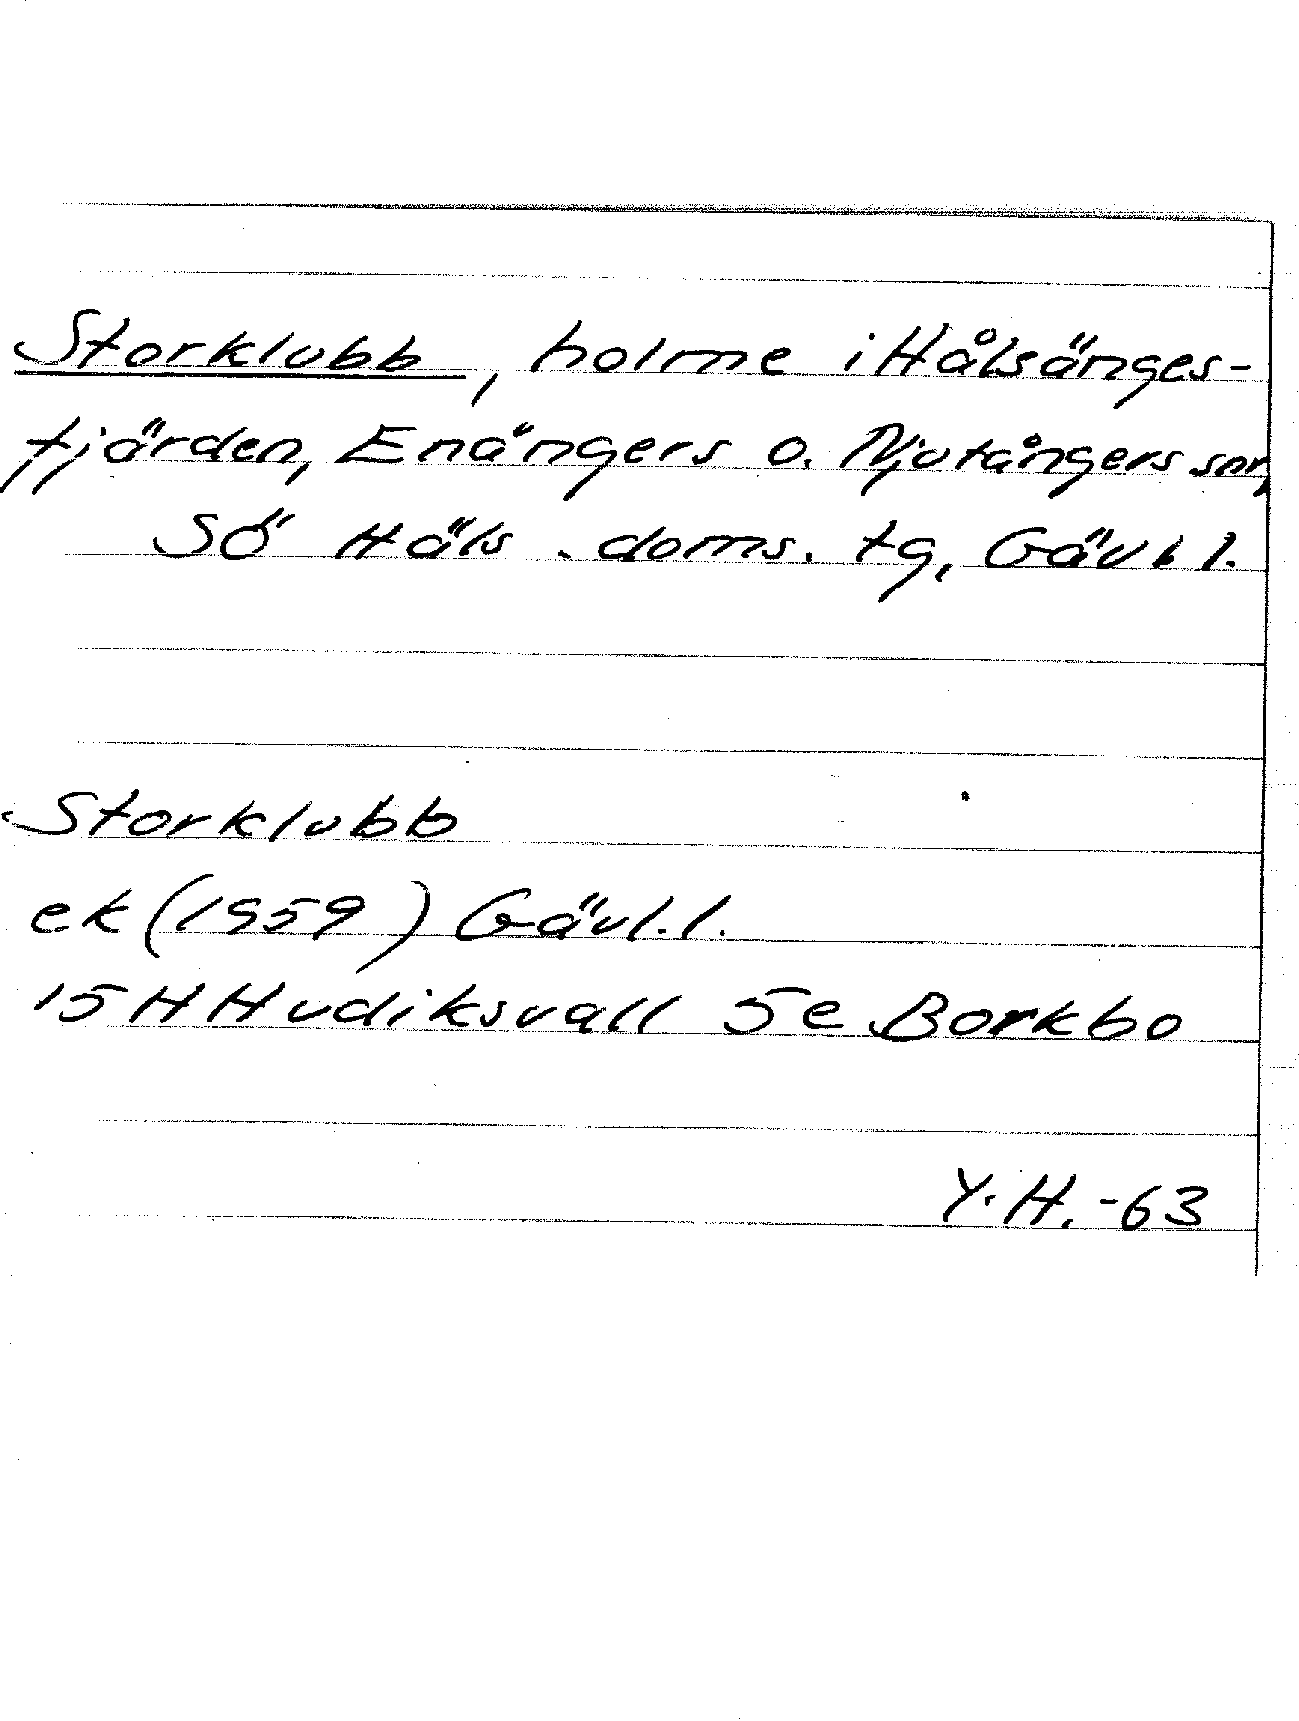 Storklubb, holme i Hålsänges-
fjärden, Enångers o. Njutångers snr,
SÖ Häls. doms. tg, Gävl l.
Storklubb
ek (1959) Gävl. l.
15H Hudiksvall 5e Borkbo
Y.H. -63